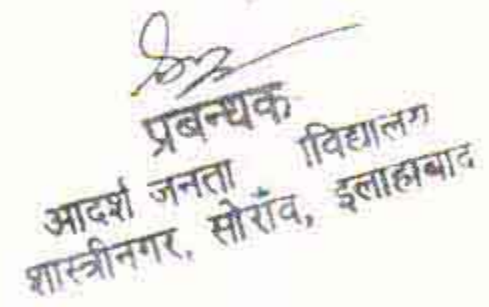 प्रबन्धक
आदर्श जनता विद्यालय
शास्त्रीनगर, सोराँव, इलाहाबाद